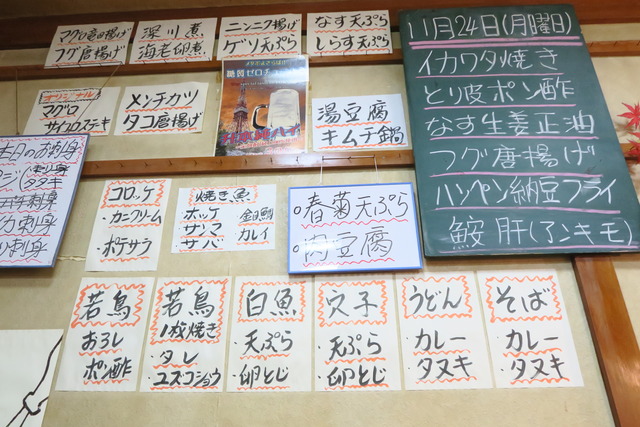 マグロ竜田揚げ
フグ唐揚げ
深川煮
海老卵煮
ニンニク揚げ
ゲソ天ぷら
なす天ぷら
しらす天ぷら
オリジナル
マグロ
サイコロステーキ
メンチカツ
タコ唐揚げ
糖質ゼロ
湯豆腐
キムチ鍋
11月24日(月曜日)
イカワタ焼き
とり皮ポン酢
なす生姜正油
フグ唐揚げ
ハンペン納豆フライ
鮟肝(アンキモ)
本日のお刺身
コロッケ
・カニクリーム
・ポテサラ
焼き魚
・ホッケ
・サンマ
・サバ
・金目鯛
・カレイ
春菊天ぷら
肉豆腐
若鳥
おろし
ポン酢
若鳥
1枚焼き
・タレ
・ユズコショウ
白魚
・天ぷら
・卵とじ
穴子
・天ぷら
・卵とじ
うどん
・カレー
・タヌキ
そば
・カレー
・タヌキ